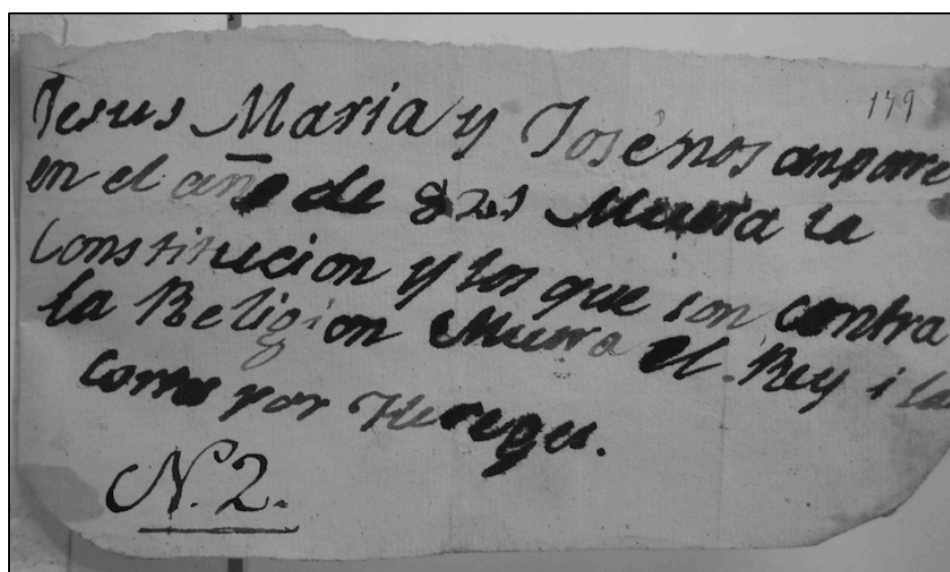 149
Jesus Maria y José nos anpare
en el año de 821 Muera la
Constitucion y los que son contra
la Religion Muera el Rey i la
cortes por Hereges.
N. 2.